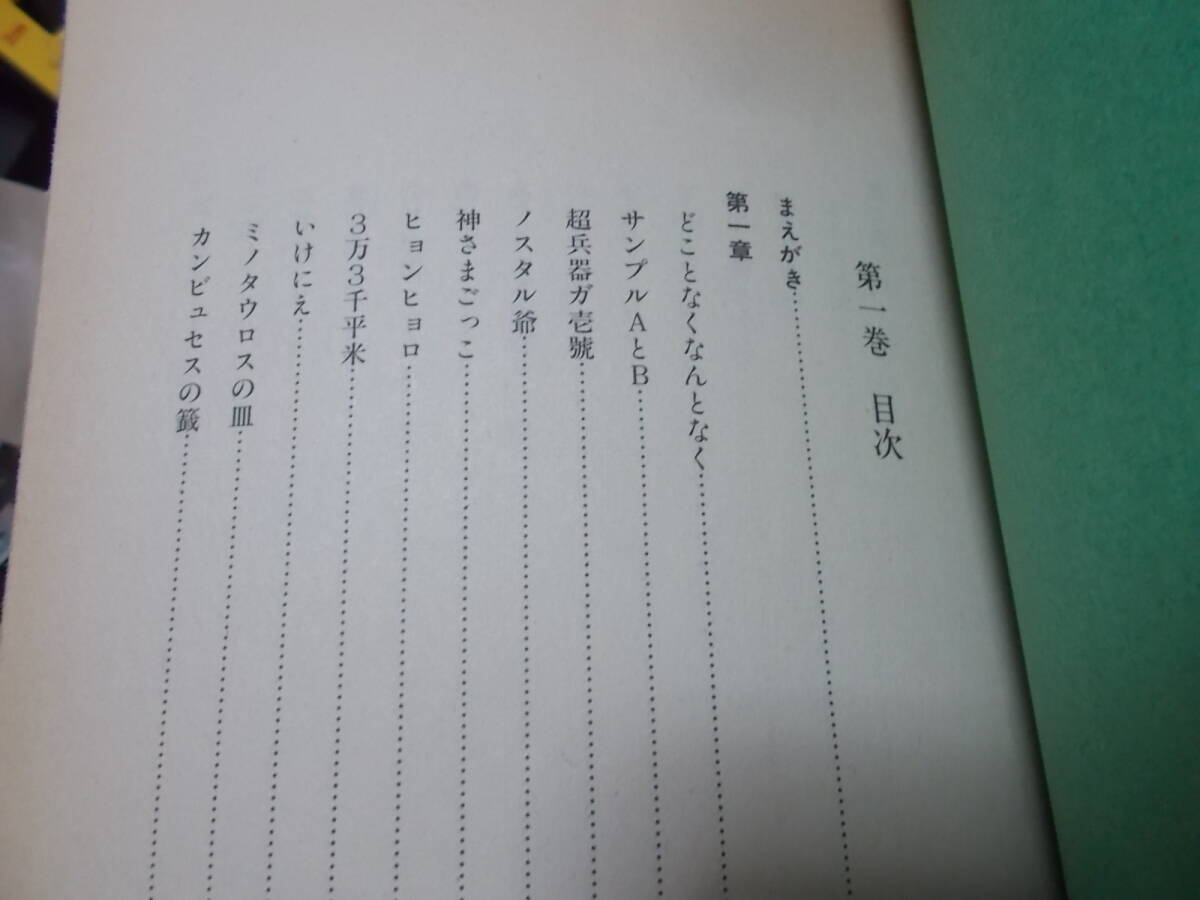 第一巻 目次
まえがき
第一章
どことなくなんとなく
サンプルAとB
超兵器ガ壱號
ノスタル爺
神さまごっこ
ヒョンヒョロ
3万3千平米
いけにえ
ミノタウロスの皿
カンビュセスの籤